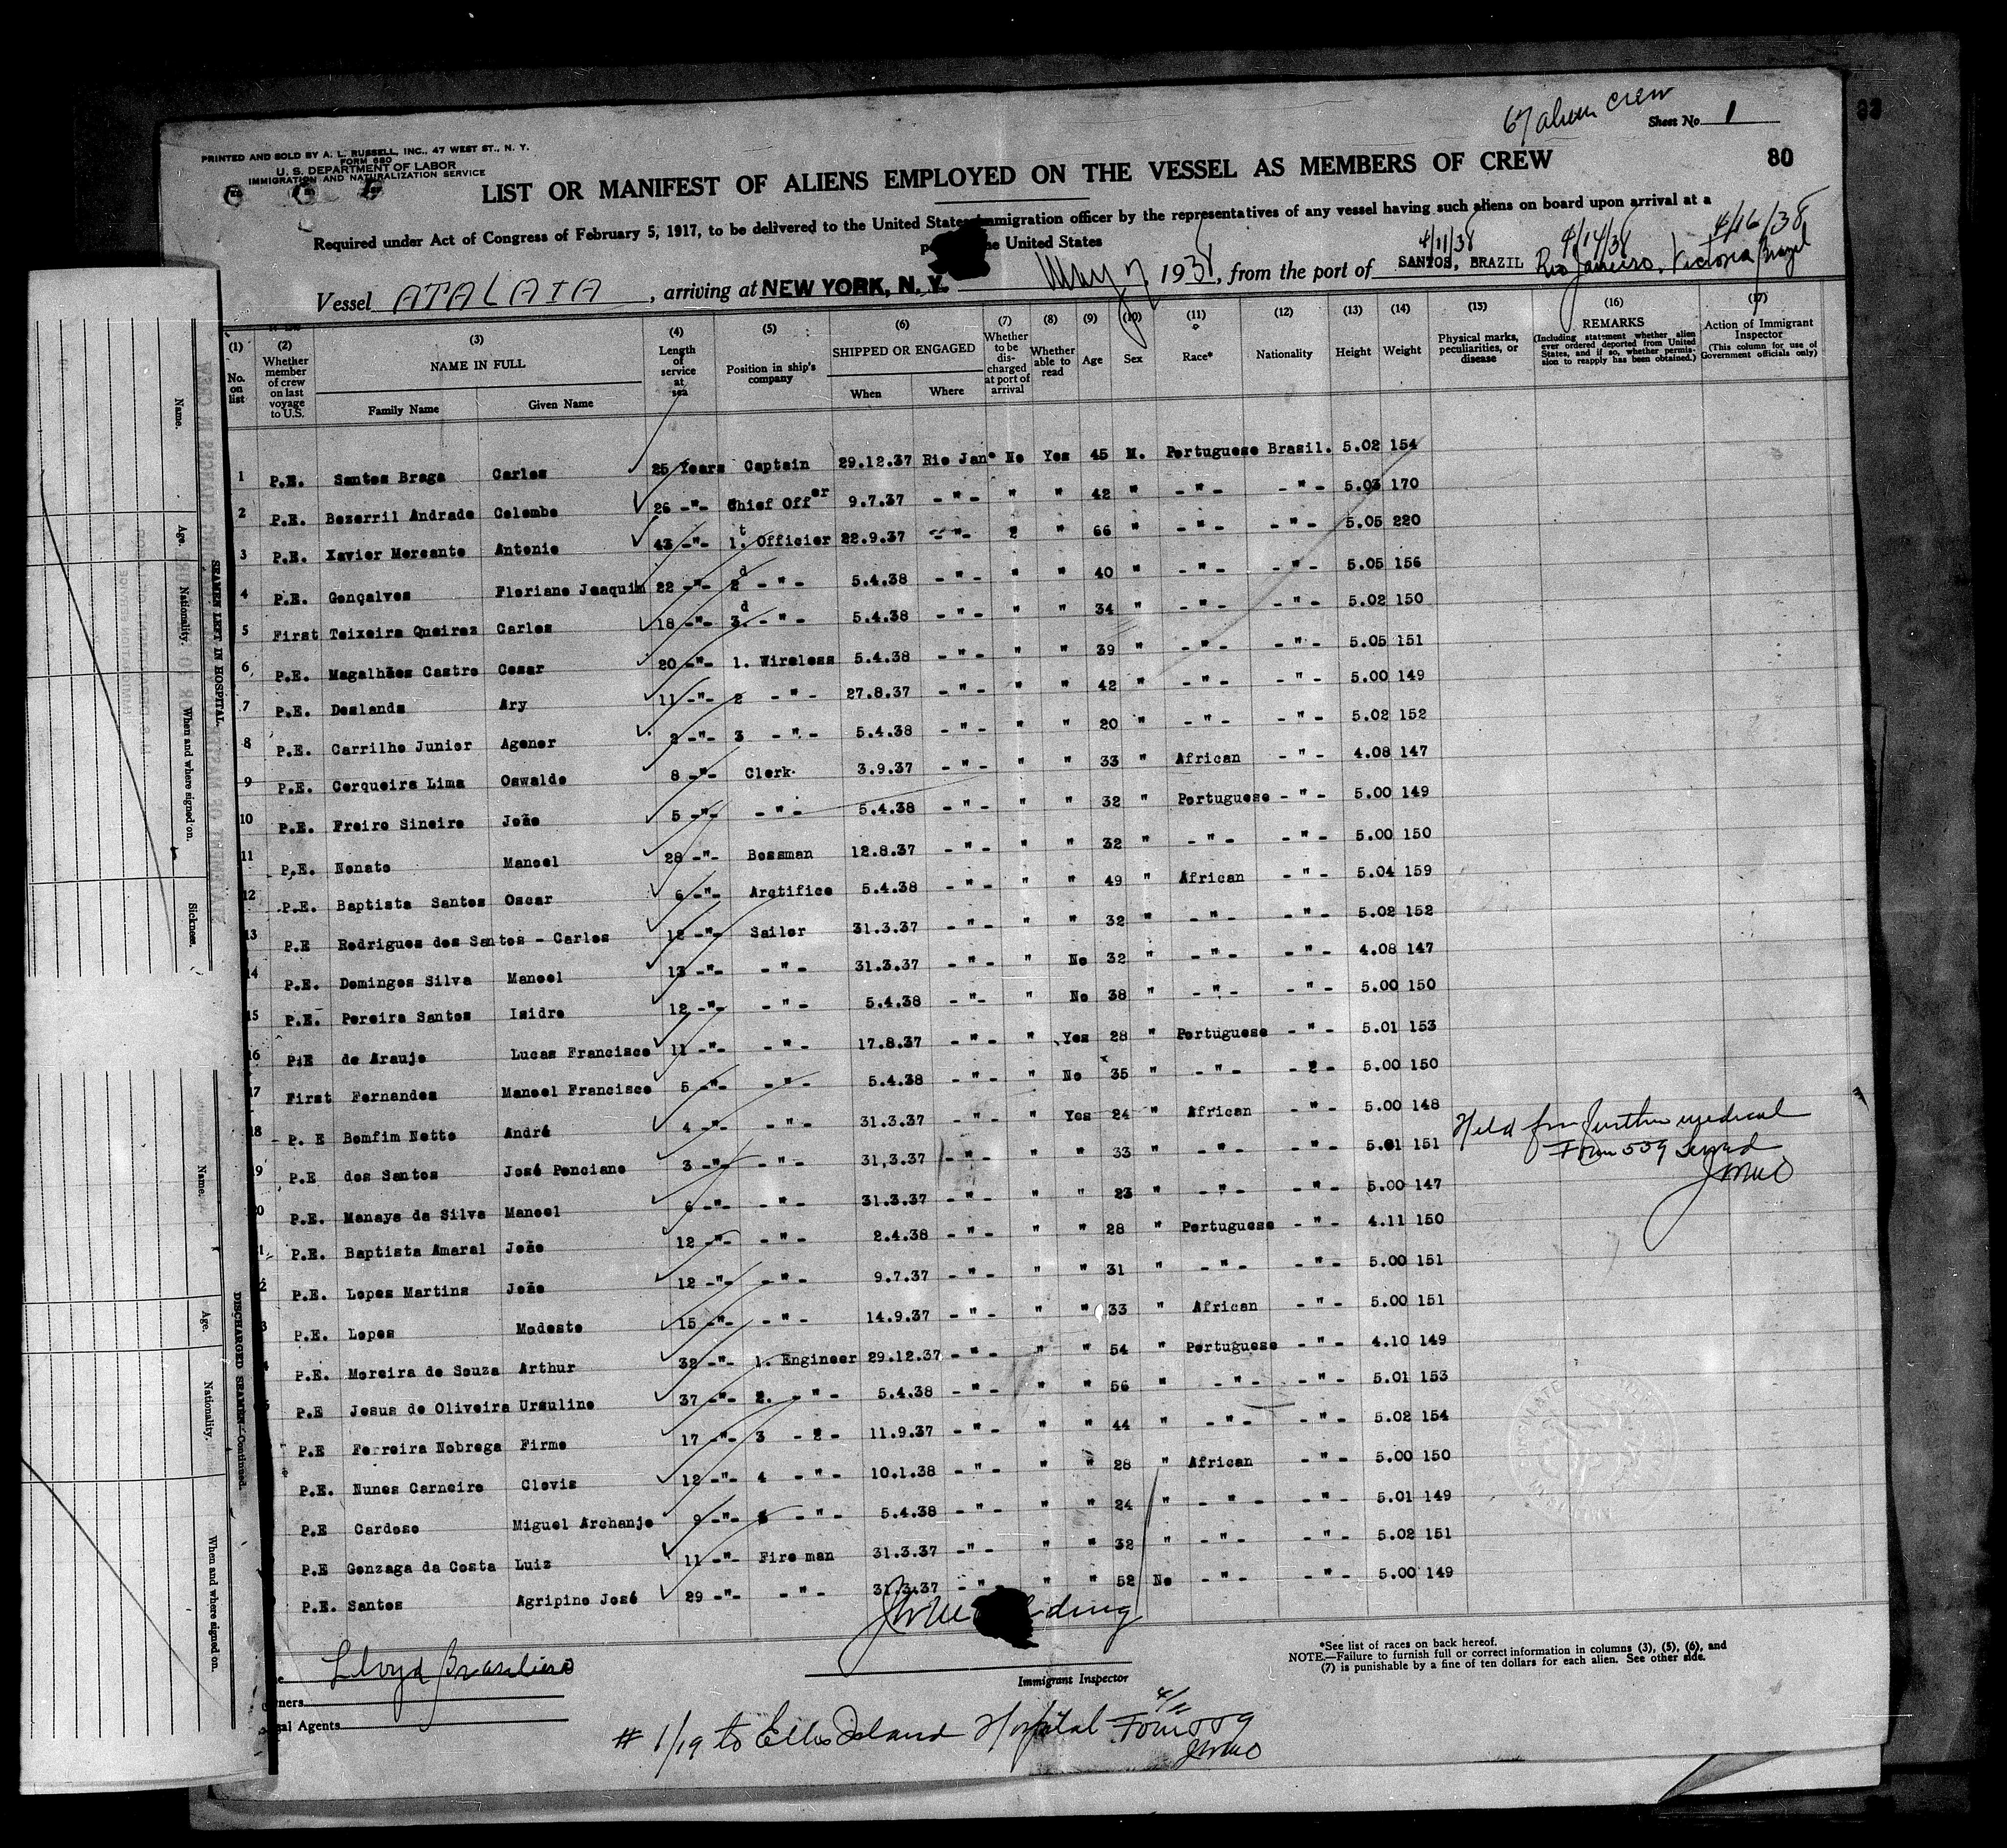 67 alien crew
Sheet No. 1
PRINTED AND SOLD BY A. L. RUSSELL, INC., 47 WEST ST., N. Y.
FORM 680
U. S. DEPARTMENT OF LABOR
IMMIGRATION AND NATURALIZATION SERVICE
80
LIST OR MANIFEST OF ALIENS EMPLOYED ON THE VESSEL AS MEMBERS OF CREW
Required under Act of Congress of February 5, 1917, to be delivered to the United States immigration officer by the representatives of any vessel having such aliens on board upon arrival at a
the United States
4/11/38 4/14/38 4/16/38
Vessel ATALAIA, arriving at NEW YORK, N. Y. May 7, 1938, from the port of SANTOS, BRAZIL Rio Janeiro, Victoria Brazil
(1) No. on list
(2) Whether member of crew on last voyage to U.S.
(3) NAME IN FULL
Family Name Given Name
(4) Length of service at sea
(5) Position in ship's company
(6) SHIPPED OR ENGAGED
When Where
(7) Whether to be discharged at port of arrival
(8) Whether able to read
(9) Age
(10) Sex
(11) Race*
(12) Nationality
(13) Height
(14) Weight
(15) Physical marks, peculiarities, or disease
(16) REMARKS (Including statement whether alien ever ordered deported from United States, and if so, whether permission to reapply has been obtained.)
(17) Action of Immigrant Inspector (This column for use of Government officials only)
1 P.E. Santos Braga Carlos 25 Years Captain 29.12.37 Rio Jan° No Yes 45 M. Portuguese Brasil. 5.02 154
2 P.E. Bezerril Andrade Colombo 26 -"- Chief Offer 9.7.37 -"- " " 42 " -"- -"- 5.03 170
3 P.E. Xavier Mercante Antonio 43 -"- 1.t Officier 22.9.37 -"- 2 " 66 " -"- -"- 5.05 220
4 P.E. Gonçalves Floriano Joaquim 22 -"- 2d -"- 5.4.38 -"- " " 40 " -"- -"- 5.05 156
5 First Teixeira Queiroz Carlos 18 -"- 3.d -"- 5.4.38 -"- " " 34 " -"- -"- 5.02 150
6 P.E. Magalhães Castro Cesar 20 -"- 1. Wireless 5.4.38 -"- " " 39 " -"- -"- 5.05 151
7 P.E. Deslands Ary 11 -"- 2 -"- 27.8.37 -"- " " 42 " -"- -"- 5.00 149
8 P.E. Carrilho Junior Agenor 2 -"- 3 -"- 5.4.38 -"- " " 20 " -"- -"- 5.02 152
9 P.E. Cerqueira Lima Oswaldo 8 -"- Clerk. 3.9.37 -"- " " 33 " African -"- 4.08 147
10 P.E. Freire Sineiro João 5 -"- -"- 5.4.38 -"- " " 32 " Portuguese -"- 5.00 149
11 P.E. Nonato Manoel 28 -"- Bossman 12.8.37 -"- " " 32 " -"- -"- 5.00 150
12 P.E. Baptista Santos Oscar 6 -"- Arctifice 5.4.38 -"- " " 49 " African -"- 5.04 159
13 P.E Rodrigues dos Santos - Carlos 12 -"- Sailor 31.3.37 -"- " " 32 " -"- -"- 5.02 152
14 P.E. Domingos Silva Manoel 13 -"- -"- 31.3.37 -"- " No 32 " -"- -"- 4.08 147
15 P.E. Pereira Santos Isidro 12 -"- -"- 5.4.38 -"- " No 38 " -"- -"- 5.00 150
16 P.E de Araujo Lucas Francisco 11 -"- -"- 17.8.37 -"- " Yes 28 " Portuguese -"- 5.01 153
17 First Fernandes Manoel Francisco 5 -"- -"- 5.4.38 -"- " No 35 " -"- -2- 5.00 150
18 P. E Bomfim Netto André 4 -"- -"- 31.3.37 -"- " Yes 24 " African -"- 5.00 148
9 P.E dos Santos José Ponciano 3 -"- -"- 31,3.37 -"- " " 33 " -"- -"- 5.01 151 Held for further medical
Form 559 served
20 P.E. Manaya da Silva Manoel 6 -"- -"- 31.3.37 -"- " " 23 " -"- -"- 5.00 147
1 P.E. Baptista Amaral João 12 -"- -"- 2.4.38 -"- " " 28 " Portuguese -"- 4.11 150
2 P.E. Lopes Martins João 12 -"- -"- 9.7.37 -"- " " 31 " -"- -"- 5.00 151
3 P.E. Lopes Modesto 15 -"- -"- 14.9.37 -"- " " 33 " African -"- 5.00 151
4 P.E. Moreira de Souza Arthur 32 -"- 1. Engineer 29.12.37 -"- " " 54 " Portuguese -"- 4.10 149
5 P.E Jesus de Oliveira Ursulino 37 -"- 2. -"- 5.4.38 -"- " " 56 " -"- -"- 5.01 153
P.E Ferreira Nobrega Firmo 17 -"- 3 -2- 11.9.37 -"- " " 44 " -"- -"- 5.02 154
P.E. Nunes Carneiro Clovis 12 -"- 4 -"- 10.1.38 -"- " " 28 " African -"- 5.00 150
P.E Cardoso Miguel Archanjo 9 -"- -"- 5.4.38 -"- " " 24 " -"- -"- 5.01 149
P.E Gonzaga da Costa Luiz 11 -"- Fire man 31.3.37 -"- " " 32 " -"- -"- 5.02 151
P.E. Santos Agripino José 29 -"- -"- 31.3.37 -"- " " 52 No -"- -"- 5.00 149
Lloyd Brasileiro
Immigrant Inspector
*See list of races on back hereof.
NOTE.—Failure to furnish full or correct information in columns (3), (5), (6), and
(7) is punishable by a fine of ten dollars for each alien. See other side.
# 1/19 to Ellis Island Hospital Form 559
Name.
Age.
Nationality.
When and where signed on.
Sickness.
SEAMEN LEFT IN HOSPITAL.
Name.
Age.
Nationality.
When and where signed on.
DISCHARGED SEAMEN—Continued.